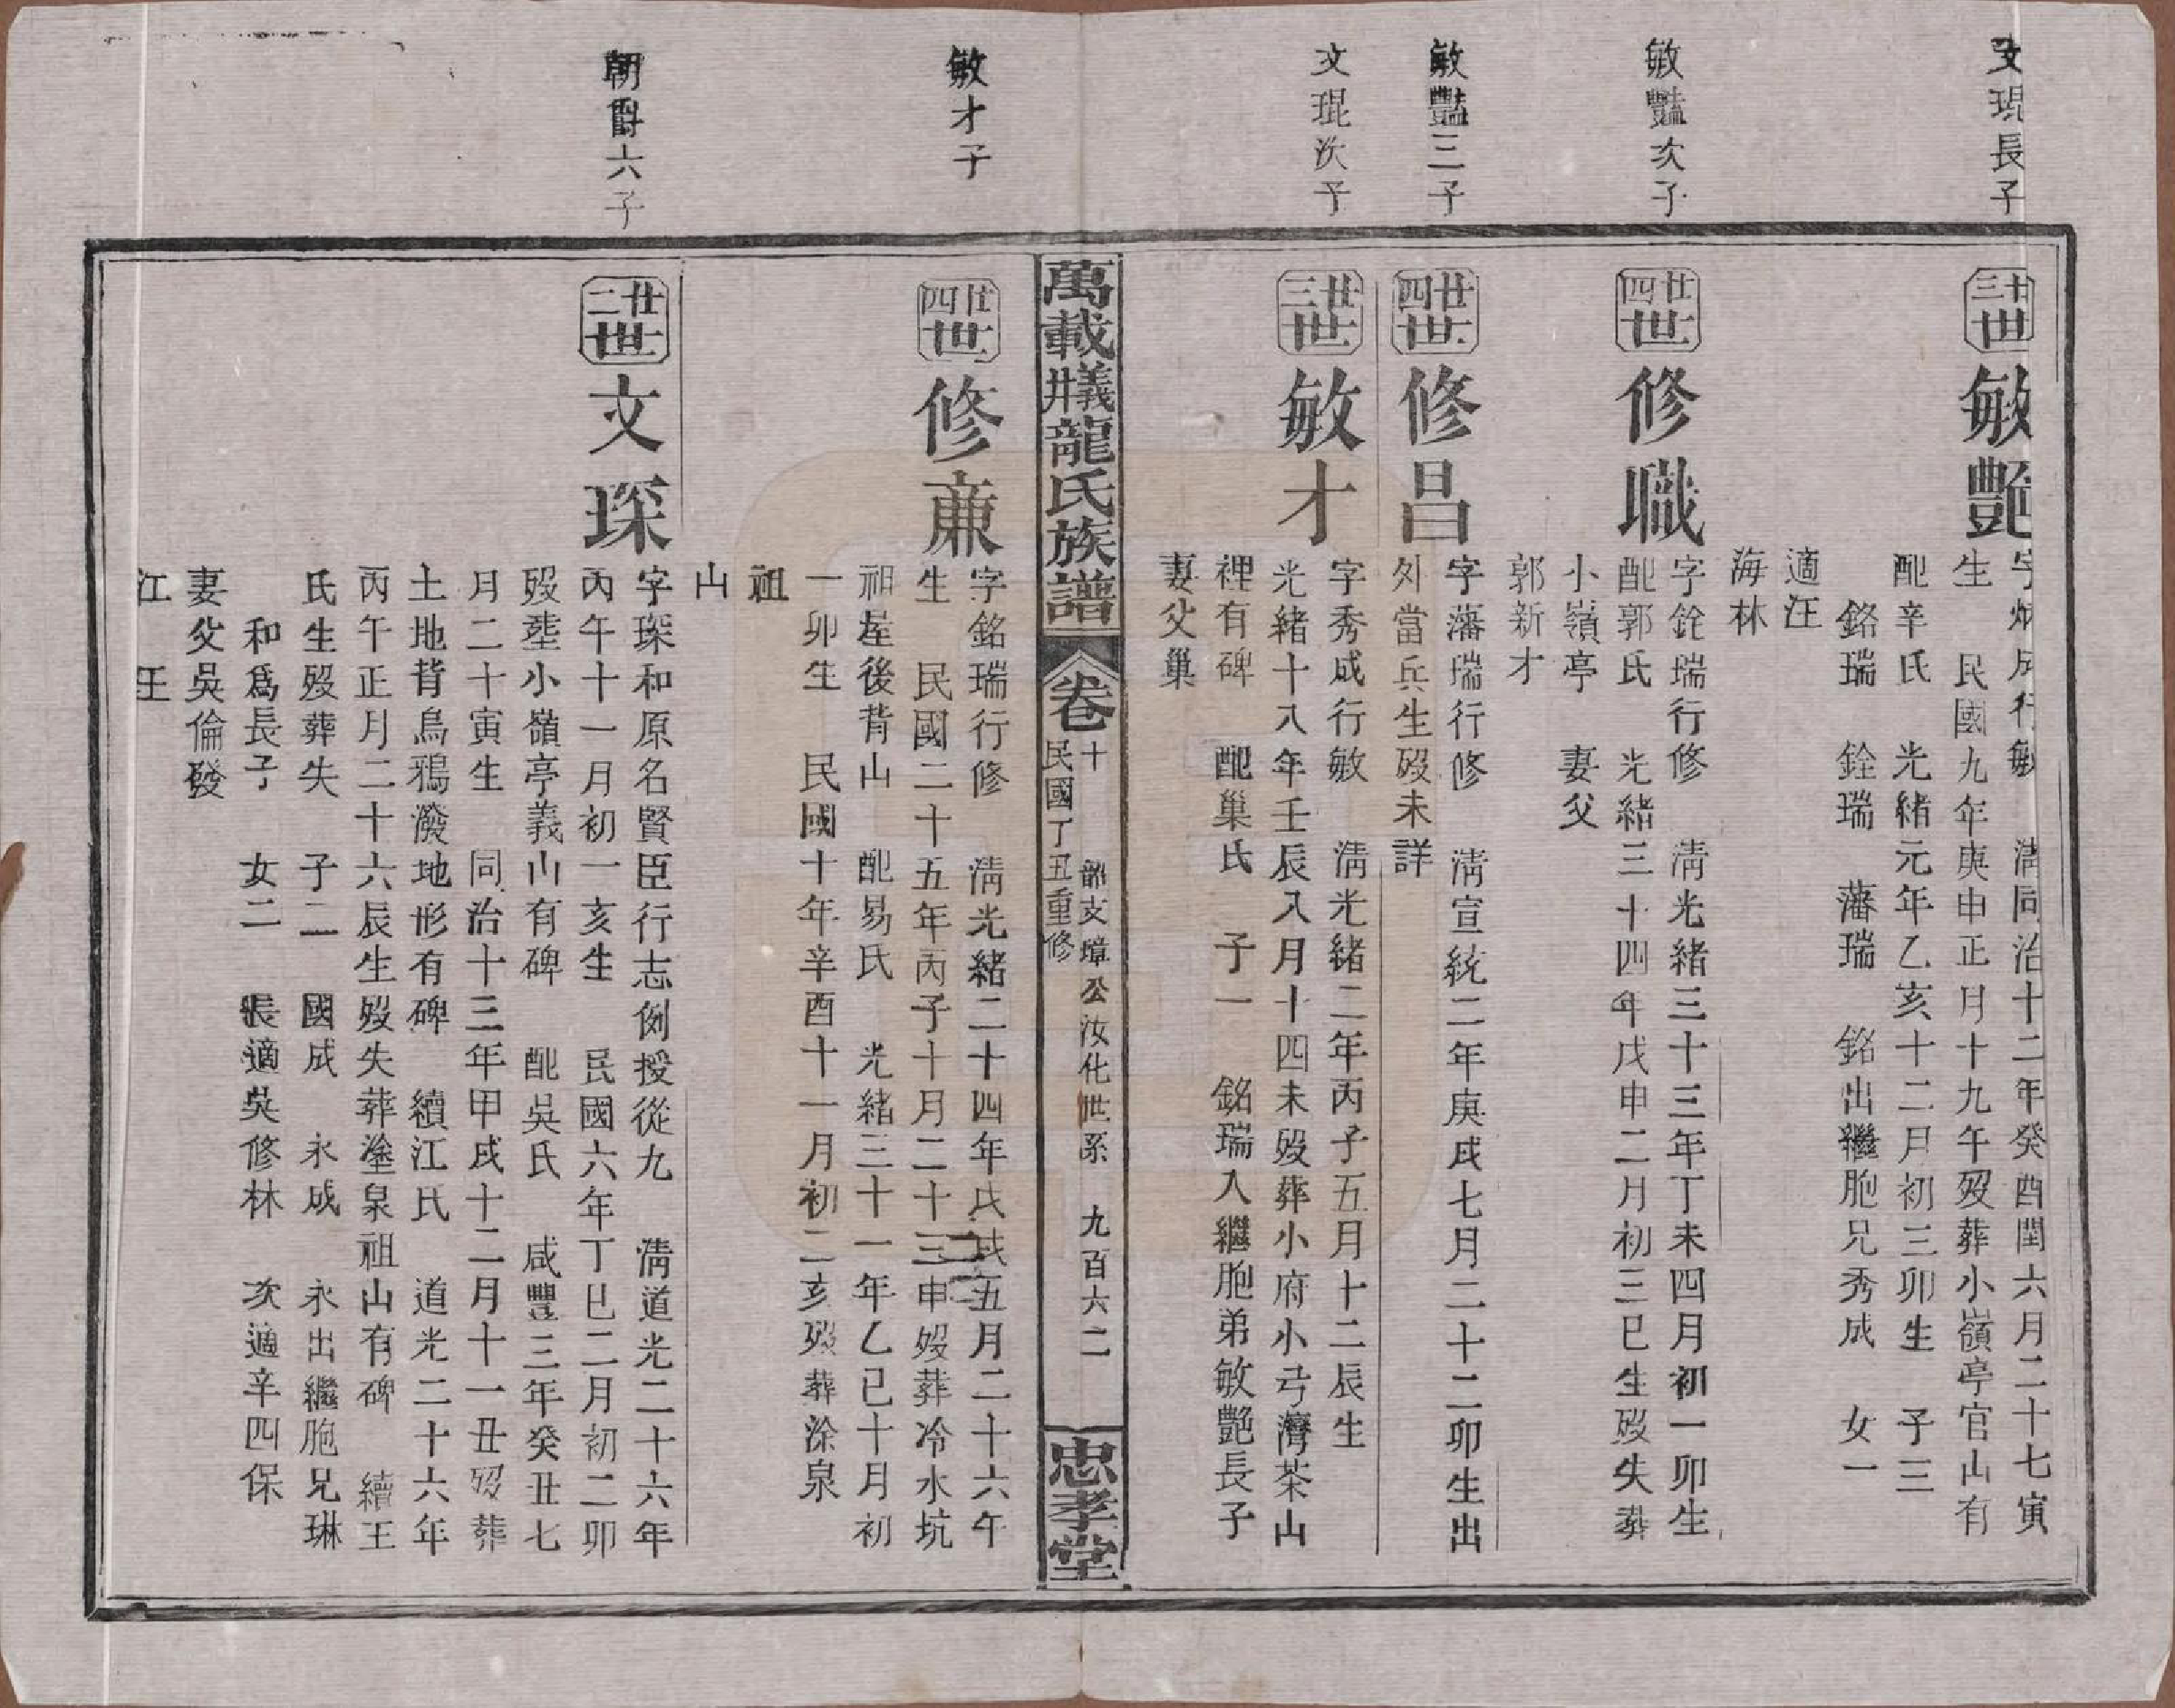 文琨長子
三十世 敏艷
字炳成行敏 清同治十二年癸酉閏六月二十七寅
生 民國九年庚申正月十九午歿葬小嶺亭官山有
配辛氏 光緒元年乙亥十二月初三卯生 子三
銘瑞 銓瑞 藩瑞 銘出繼胞兄秀成 女一
適汪
海林
敏豔次子
廿四世 修職
字銓瑞行修 清光緒三十三年丁未四月初一卯生
配郭氏 光緒三十四年戊申二月初三巳生歿失葬
小嶺亭 妻父
郭新才
敏豔三子
廿四世 修昌
字藩瑞行修 清宣統二年庚戌七月二十二卯生出
外當兵生歿未詳
文琨次子
廿三世 敏才
字秀成行敏 清光緒二年丙子五月十二辰生
光緒十八年壬辰八月十四未歿葬小府小弓濟茶山
裡有碑 配巢氏 子一 銘瑞入繼胞弟敏艷長子
妻父巢
萬載義井龍氏族譜 卷十 韶支璋公汝化世系 九百六二
民國丁丑重修
忠孝堂
敏才子
廿四世 修亷
字銘瑞行修 清光緒二十四年戊戌五月二十六午
生 民國二十五年丙子十月二十三申歿葬冷水坑
祖屋後背山 配易氏 光緒三十一年乙巳十月初
一卯生 民國十年辛酉十一月初二亥歿葬涂泉
祖
山
朝爵六子
廿二世 文琛
字琛和原名賢臣行志例授從九 清道光二十六年
丙午十一月初一亥生 民國六年丁巳二月初二卯
歿塟小嶺亭義山有碑 配吳氏 咸豐三年癸丑七
月二十寅生 同治十三年甲戌十二月十一丑歿葬
土地背烏鴉潑地形有碑 續江氏 道光二十六年
丙午正月二十六辰生歿失葬塗泉祖山有碑 續王
氏生歿葬失 子二 國成 永成 永出繼胞兄琳
和爲長子 女二 長適吳修林 次適辛四保
妻父吳倫發
江 王